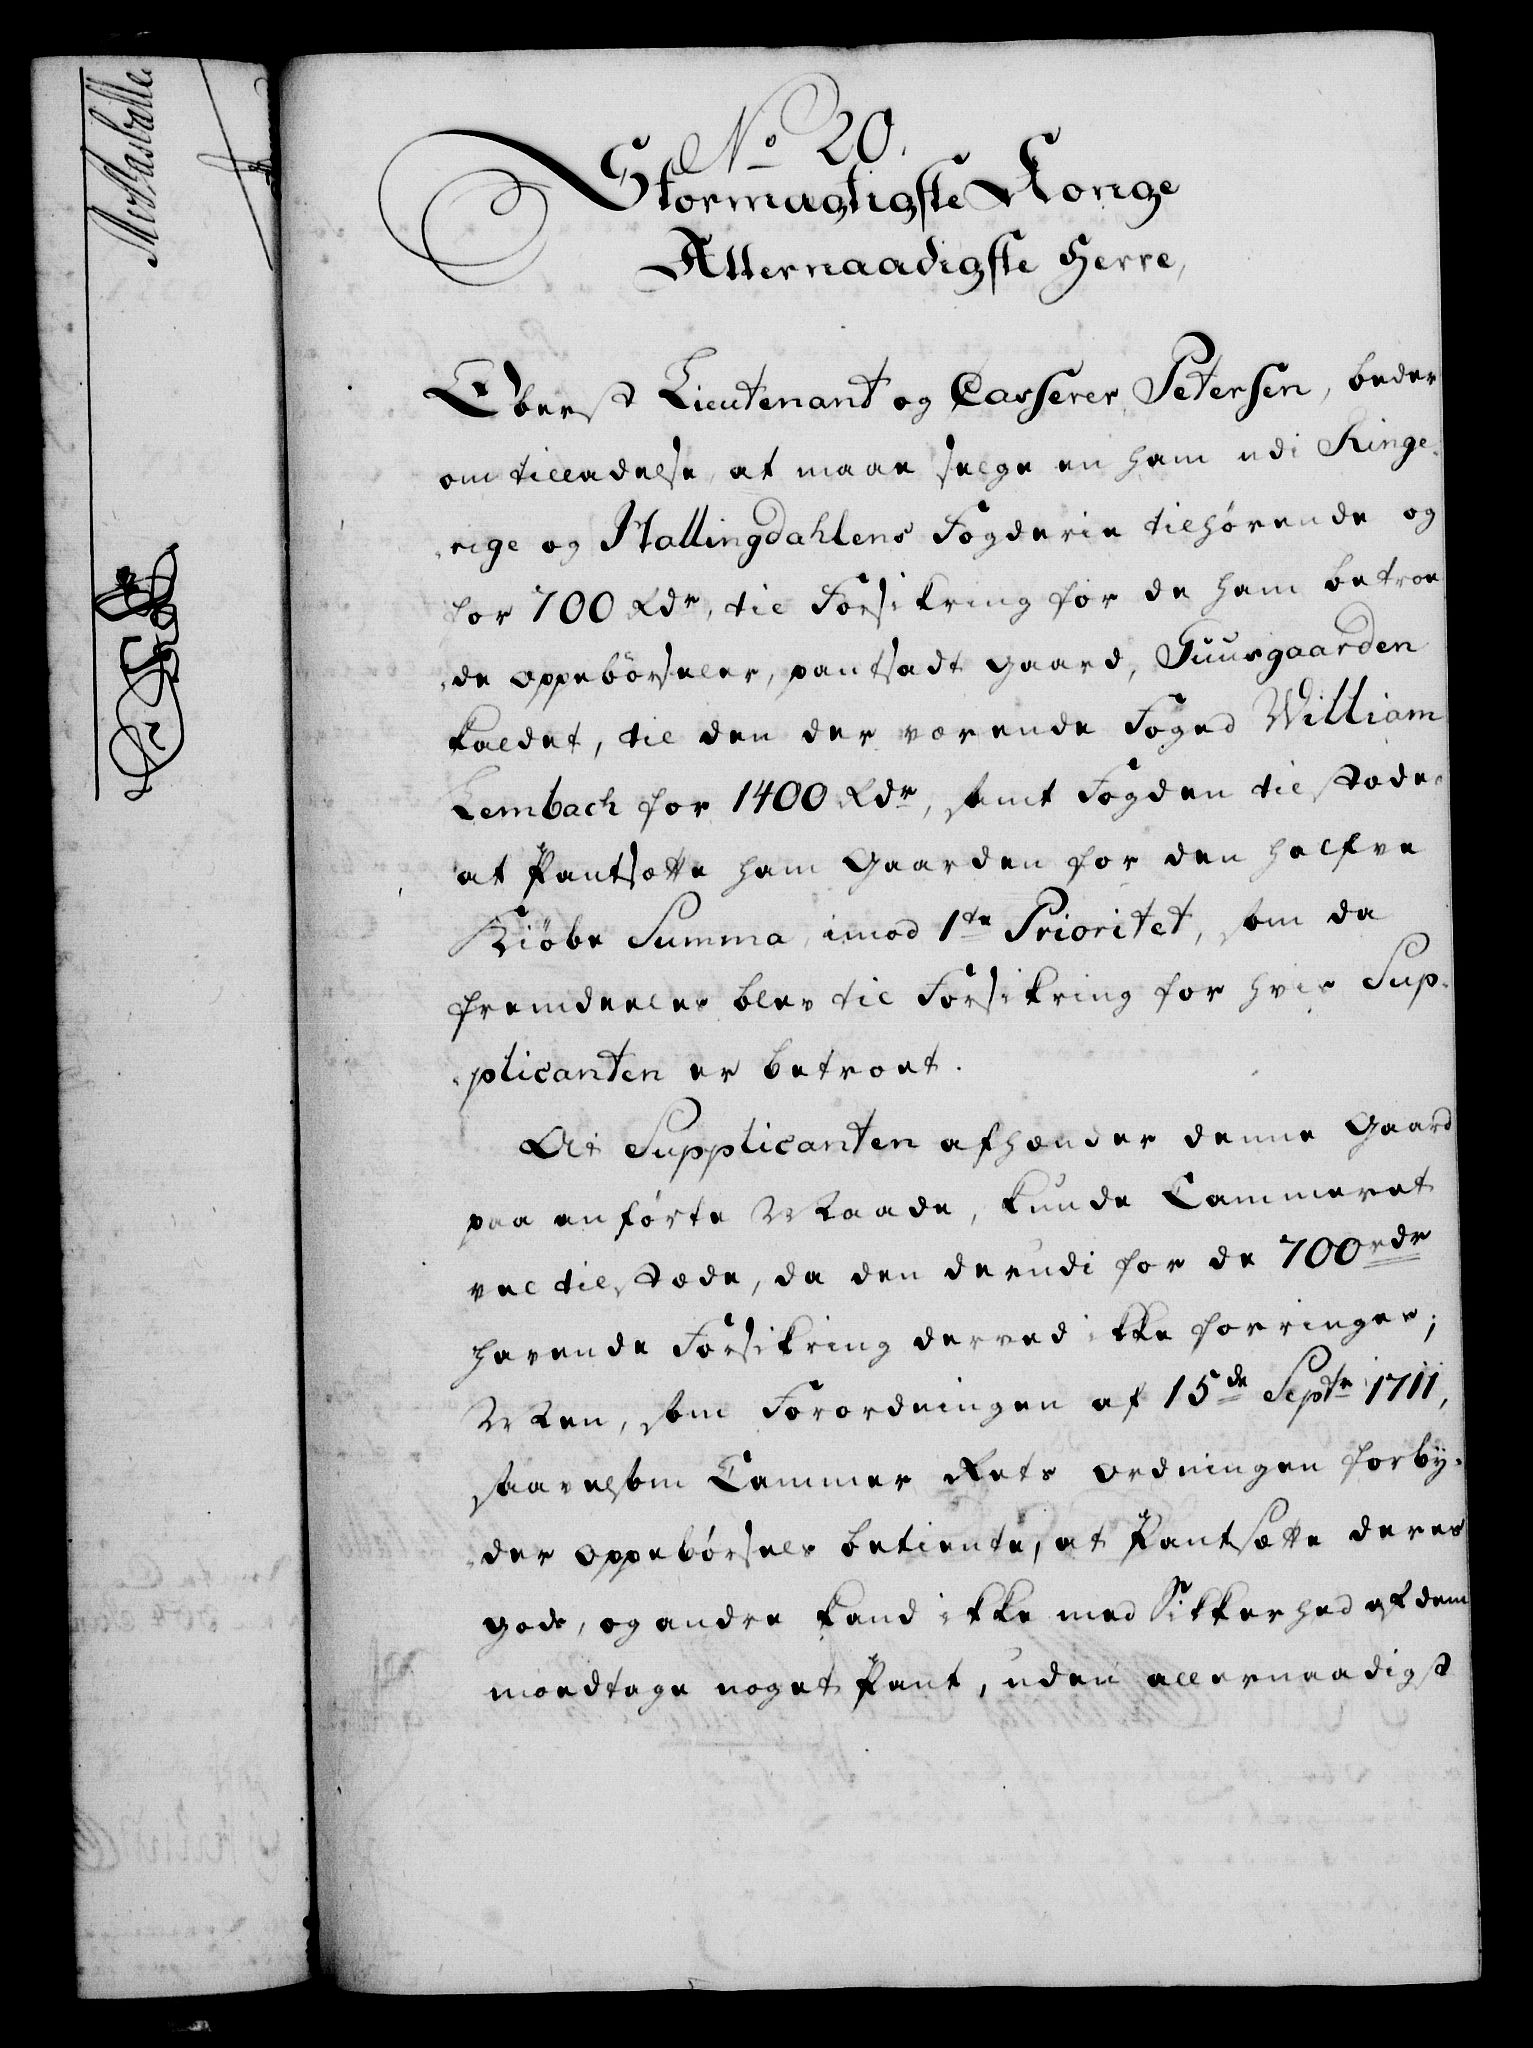 No 20.
Stormagtigste Konge
Allernaadigste Herre,
Oberst Lieutenant og Casserer Petersen, beder
om tilladelse, at maae selge en ham udi Ringe-
rige og Hallingdahlens Fogderie tilhørende og
for 700 Rdr, til Forsikring for de ham betroe
de oppebørseler, pantsadt gaard, Tuusgaarden
kaldet, til den der værende Foged William
Lembach for 1400 Rdr, samt Fogden tilstæde-
at Pantsætte ham Gaarden for den halfve
Kiöbe Summa, imod 1te Prioritet, som da
fremdeeles blev til Forsikring for hvis Sup-
plicanten er betroet.
At Supplicanten afhænder denne Gaard
paa anførte Maade, kunde Cammeret
vel tilstæde, da den derudi for de 700 rdr
havende Forsikring derved ikke forringes;
Men, som Forordningen af 15de Septr 1711,
saavelsom Cammer Rets ordningen forby-
der oppebørsels betiente, at Pantsætte deres
gods, og andre kand ikke med Sikkerhed af dem
modtage noget Pant, uden allernaadigst